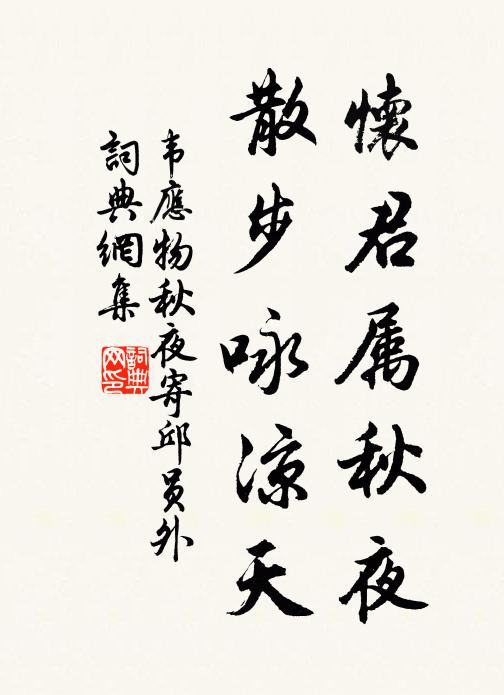 懷君属秋夜
散步咏涼天
韦應物秋夜寄邱員外
詞典網集
詞典网印